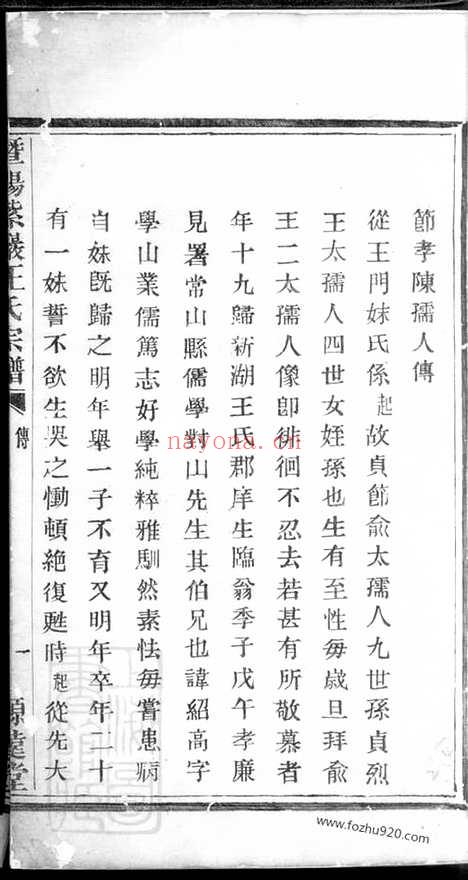 節孝陳孺人傳
從王門妹氏係起故貞節俞太孺人九世孫貞烈
王太孺人四世女姪孫也生有至性每歲旦拜俞
王二太孺人像卽徘徊不忍去若甚有所敬慕者
年十九歸新湖王氏郡庠生臨翁季子戊午孝廉
見署常山縣儒學對山先生其伯兄也諱紹高字
學山業儒篤志好學純粹雅馴然素怯每嘗患病
自妹旣歸之明年舉一子不育又明年卒年二十
有一妹誓不欲生哭之慟頓絶復甦時起從先大
暨陽紫巖王氏宗譜
傳
一
源遠堂
nayona.cn
www.fozhu920.com